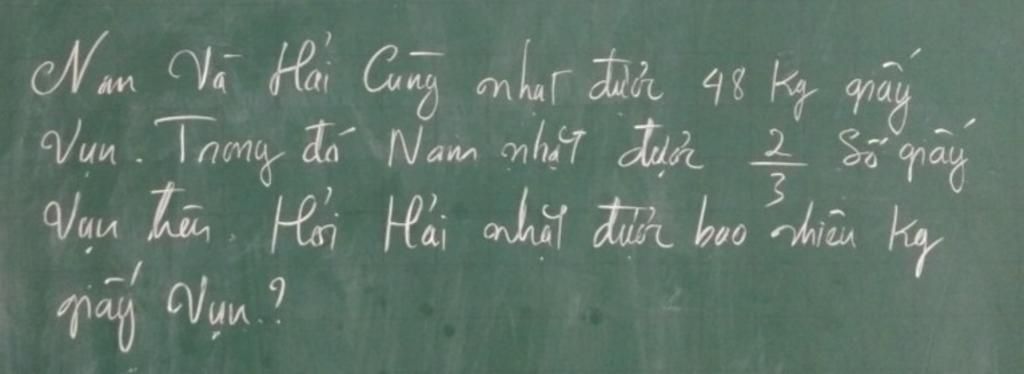 Nam Và Hải Cùng nhặt được 48 Kg giấy
Vụn. Trong đó Nam nhặt được 2/3 Số giấy
Vụn trên. Hỏi Hải nhặt được bao nhiêu Kg
giấy Vụn?